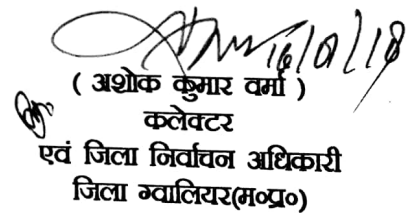 16/01/18
( अशोक कुमार वर्मा )
कलेक्टर
एवं जिला निर्वाचन अधिकारी
जिला ग्वालियर(म०प्र०)